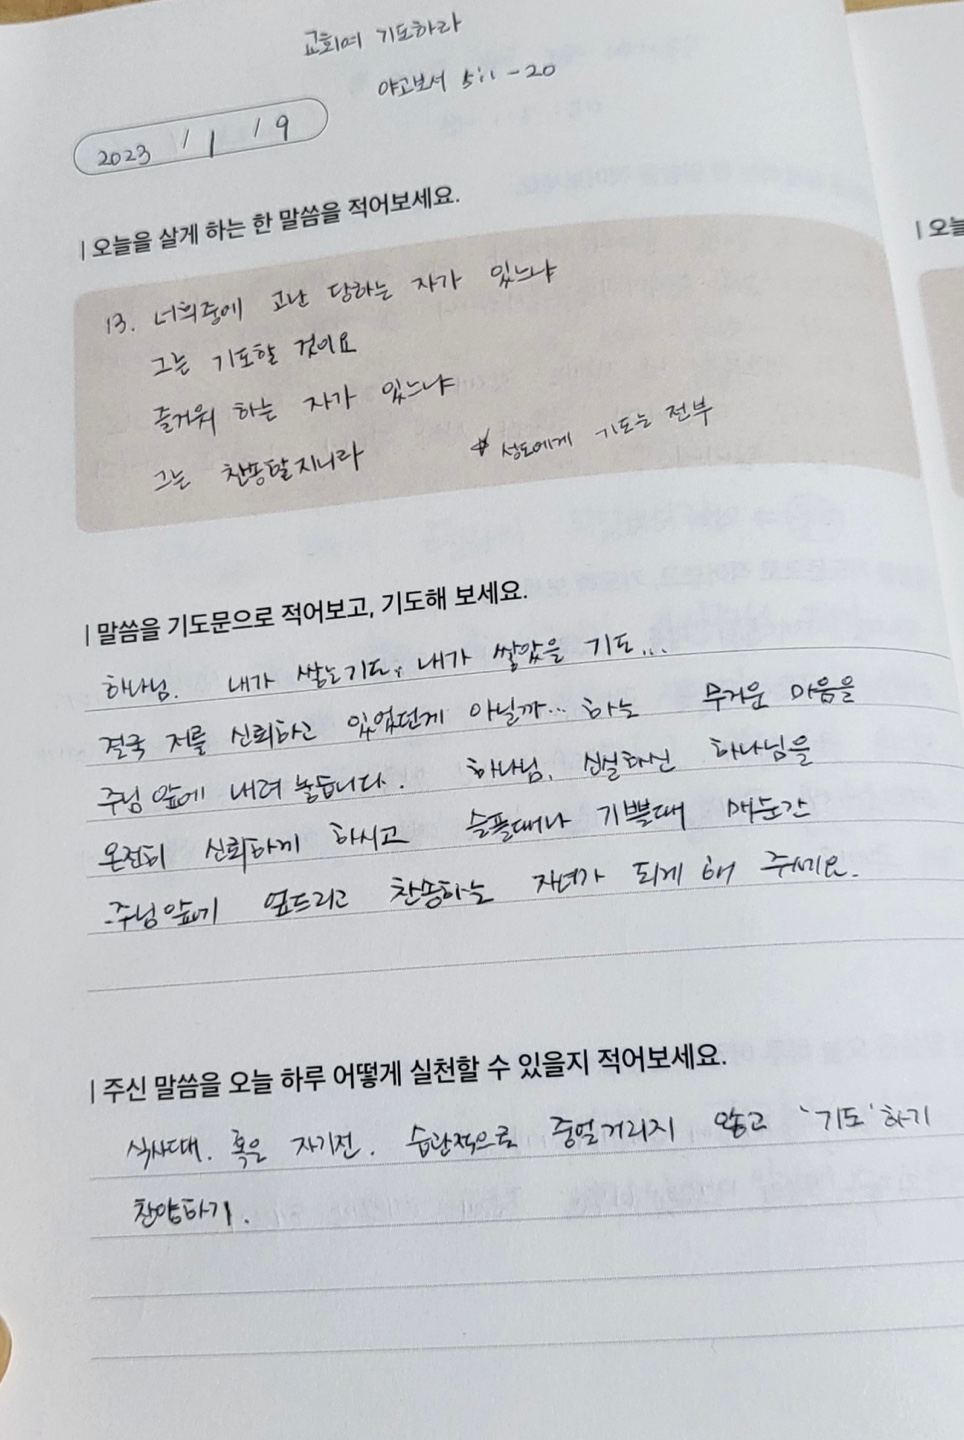 교회여 기도하라
야고보서 5:1-20
2023 / 1 / 9
| 오늘을 살게 하는 한 말씀을 적어보세요.
13. 너희중에 고난 당하는 자가 있느냐
그는 기도할 것이요
즐거워 하는 자가 있느냐
그는 찬송할지니라
* 성도에게 기도는 전부
| 말씀을 기도문으로 적어보고, 기도해 보세요.
하나님. 내가 쌓는기도, 내가 쌓았을 기도...
결국 저를 신뢰하고 있었던게 아닐까... 하는 무거운 마음을
주님 앞에 내려 놓습니다. 하나님, 신실하신 하나님을
온전히 신뢰하게 하시고 슬플때나 기쁠때 매순간
주님앞에 엎드리고 찬송하는 자녀가 되게 해 주세요.
| 주신 말씀을 오늘 하루 어떻게 실천할 수 있을지 적어보세요.
식사때. 혹은 자기전. 습관적으로 중얼거리지 않고 '기도'하기
찬양하기.
| 오늘